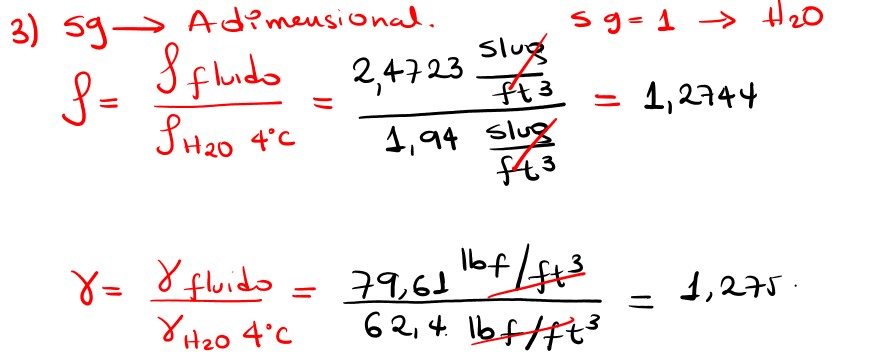 3) sg → Adimensional. sg = 1 → H2O
ρ = ρ fluido / ρ H2O 4°C = 2,4723 slug/ft3 / 1,94 slug/ft3 = 1,2744
γ = γ fluido / γ H2O 4°C = 79,61 lbf/ft3 / 62,4 lbf/ft3 = 1,275.